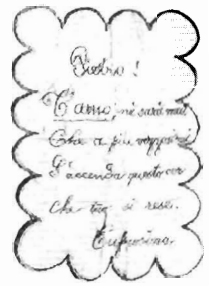 Pietro!
T'amo, nè sarà mai
Che a più vezzosi
S'accenda questo cor
che tuo si rese.
Eufrosina